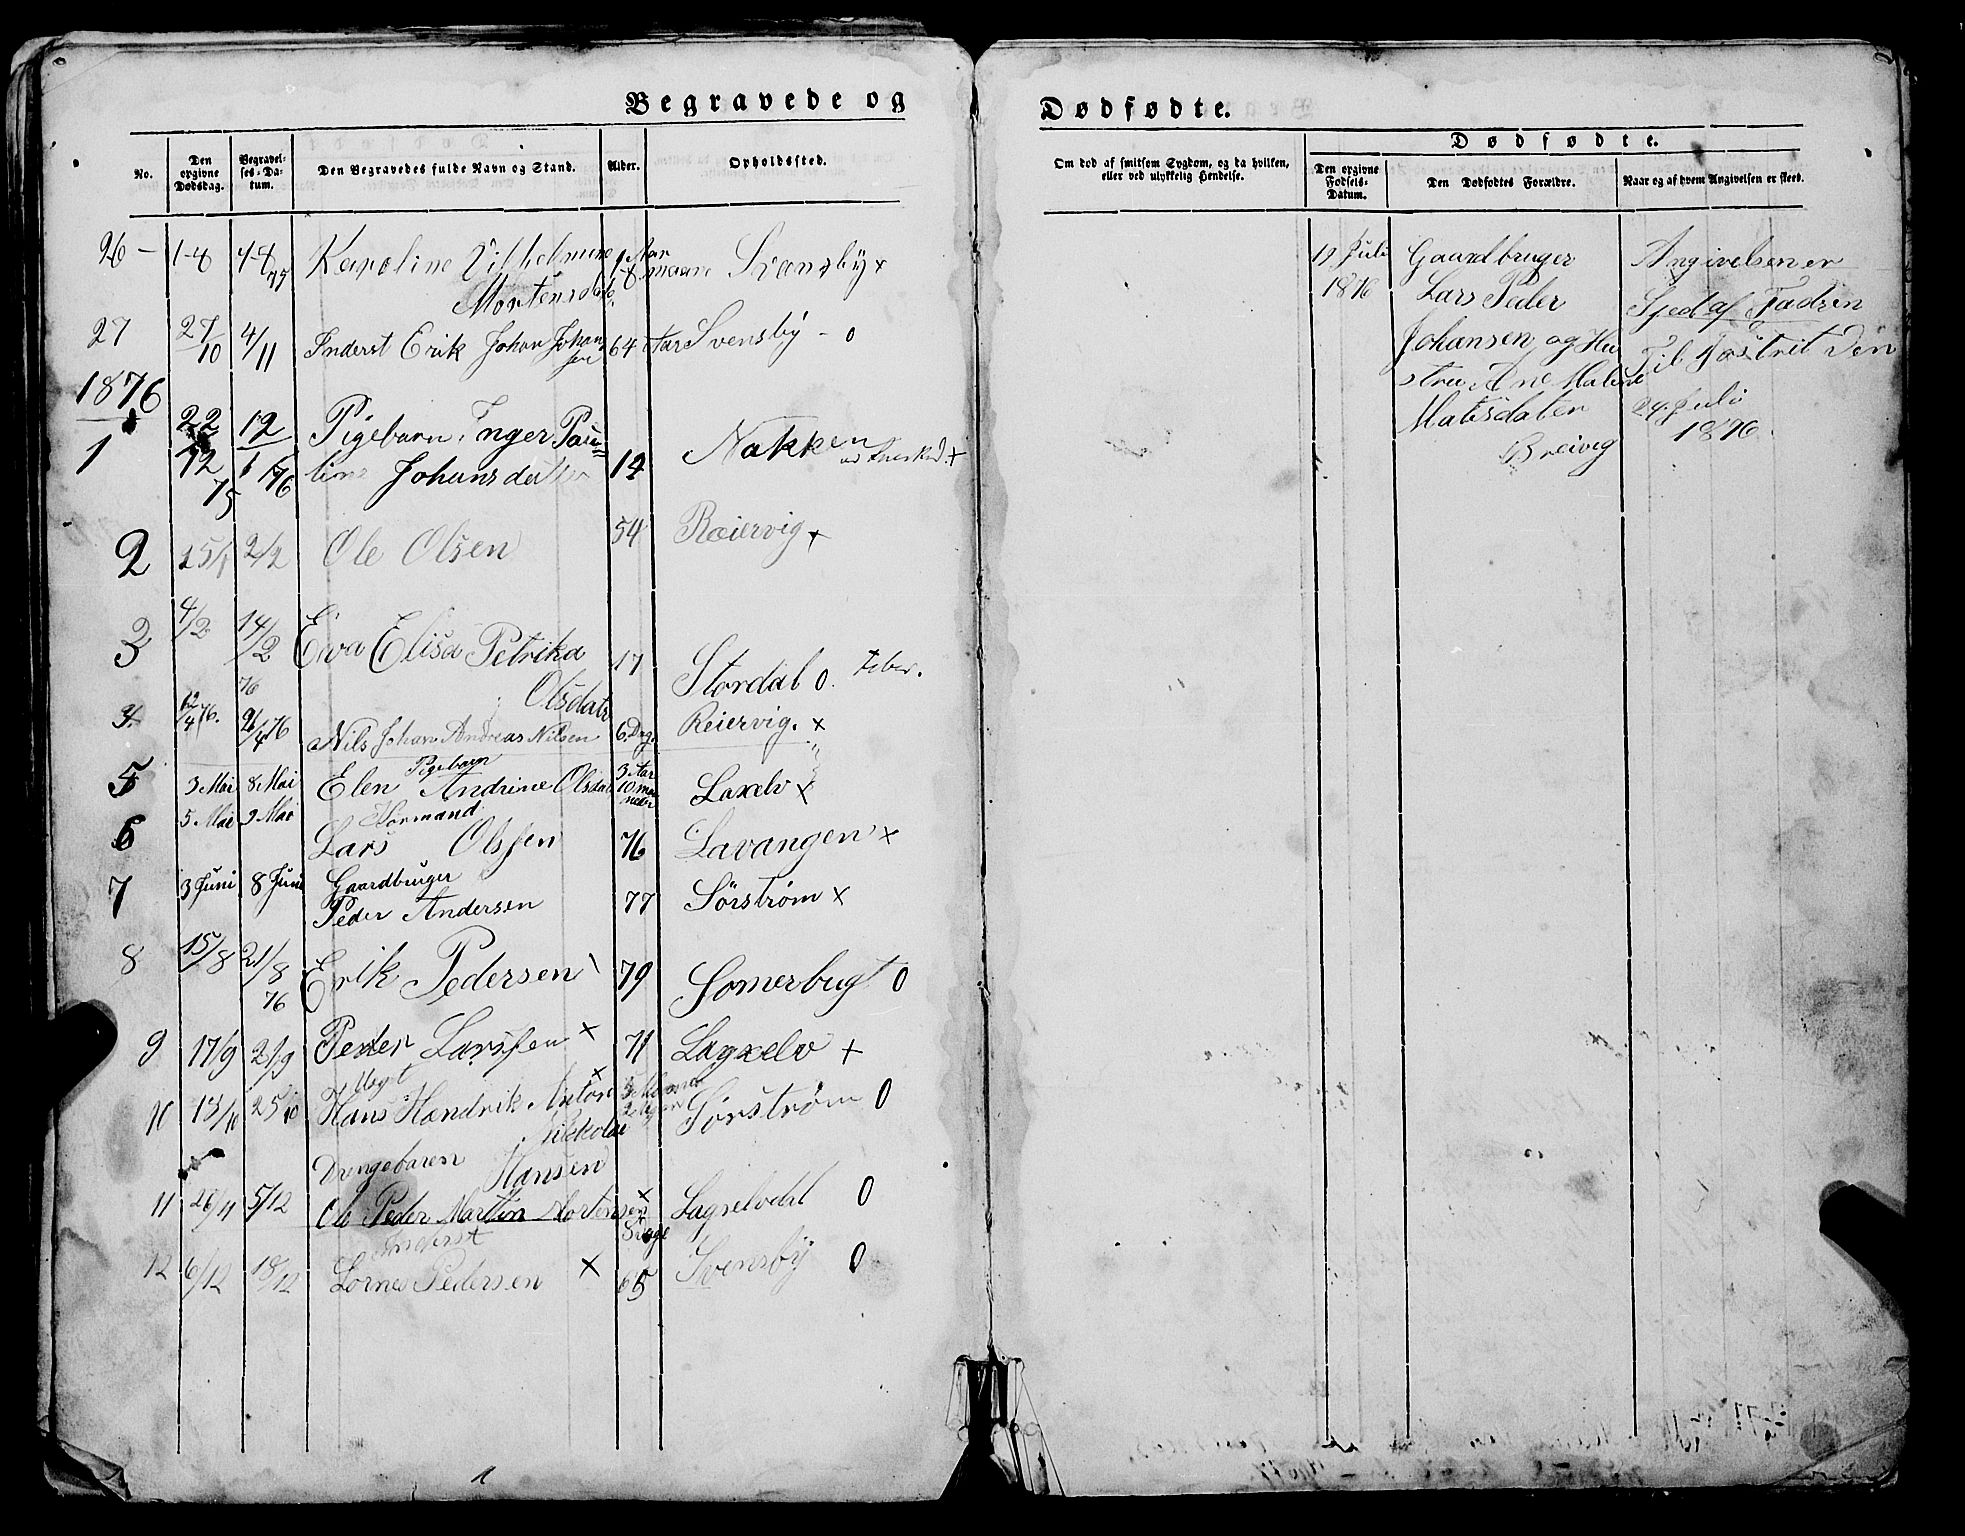 Begravede og
No.
Den opgivne Dødsdag.
Begravelses-Datum.
Den Begravedes fulde Navn og Stand.
Alder.
Opholdssted.
26 – 1-8 4-8 Karoline Vilhelmine 1 Aar Svensby x
77 Mortensdat.
27 27/10 4/11 Inderst Erik Johan Johansen 64 Aar Svensby – o
1876
1 22/12 75 12/1 76 Pigebarn Inger Pau= 14 Nakken
line Johansdatter
2 25/1 2/2 Ole Olsen 54 Reiervig x
3 4/2 14/2 76 Eva Elisa Petrika 17 Stordal o.
Olsdatr
4. 12/4 76. 21/4 76 Nils Johan Andreas Nilsen 6 Dag. Reiervig. x
Pigebarn
5 3 Mai 8 Mai Elen Andrine Olsdat 3 Aar 10 maaneder Laxelv x
Kormand
6 5 Mai 9 Mai Lars Olssen 76 Lavangen x
7 3 Juni 8 Juni Gaardbruger
Peder Andersen 77 Sörstrøm x
8 15/8 21/8 76 Erik Pedersen 79 Somerbugt o
9 17/9 21/9 Peder Larssen x 71 Lagxelv x
10 13/10 25/10 Hans Hendrik x Sørstrøm o
Nikkolai
Hansen
Drengebaren
11 26/11 5/12 Ole Peder Martin Mortensen x Lagxelvdal o
Inderst
12 6/12 18/12 Pedersen x 65 Svensby o
Dødfødte.
Om død af smitsom Sygdom, og da hvilken,
eller ved ulykkelig Hendelse.
Dødfødte.
Den opgivne Fødsels-Datum.
Den Dødfødtes Forældre.
Naar og af hvem Angivelsen er skeed.
17 Juli Gaardbruger Angivelsen er
1876 Lars Peder Sjed af Fadren
Johansen og Hu Til Den
stru Ane Malene
Matisdater 29 Juli
Breivig 1876.